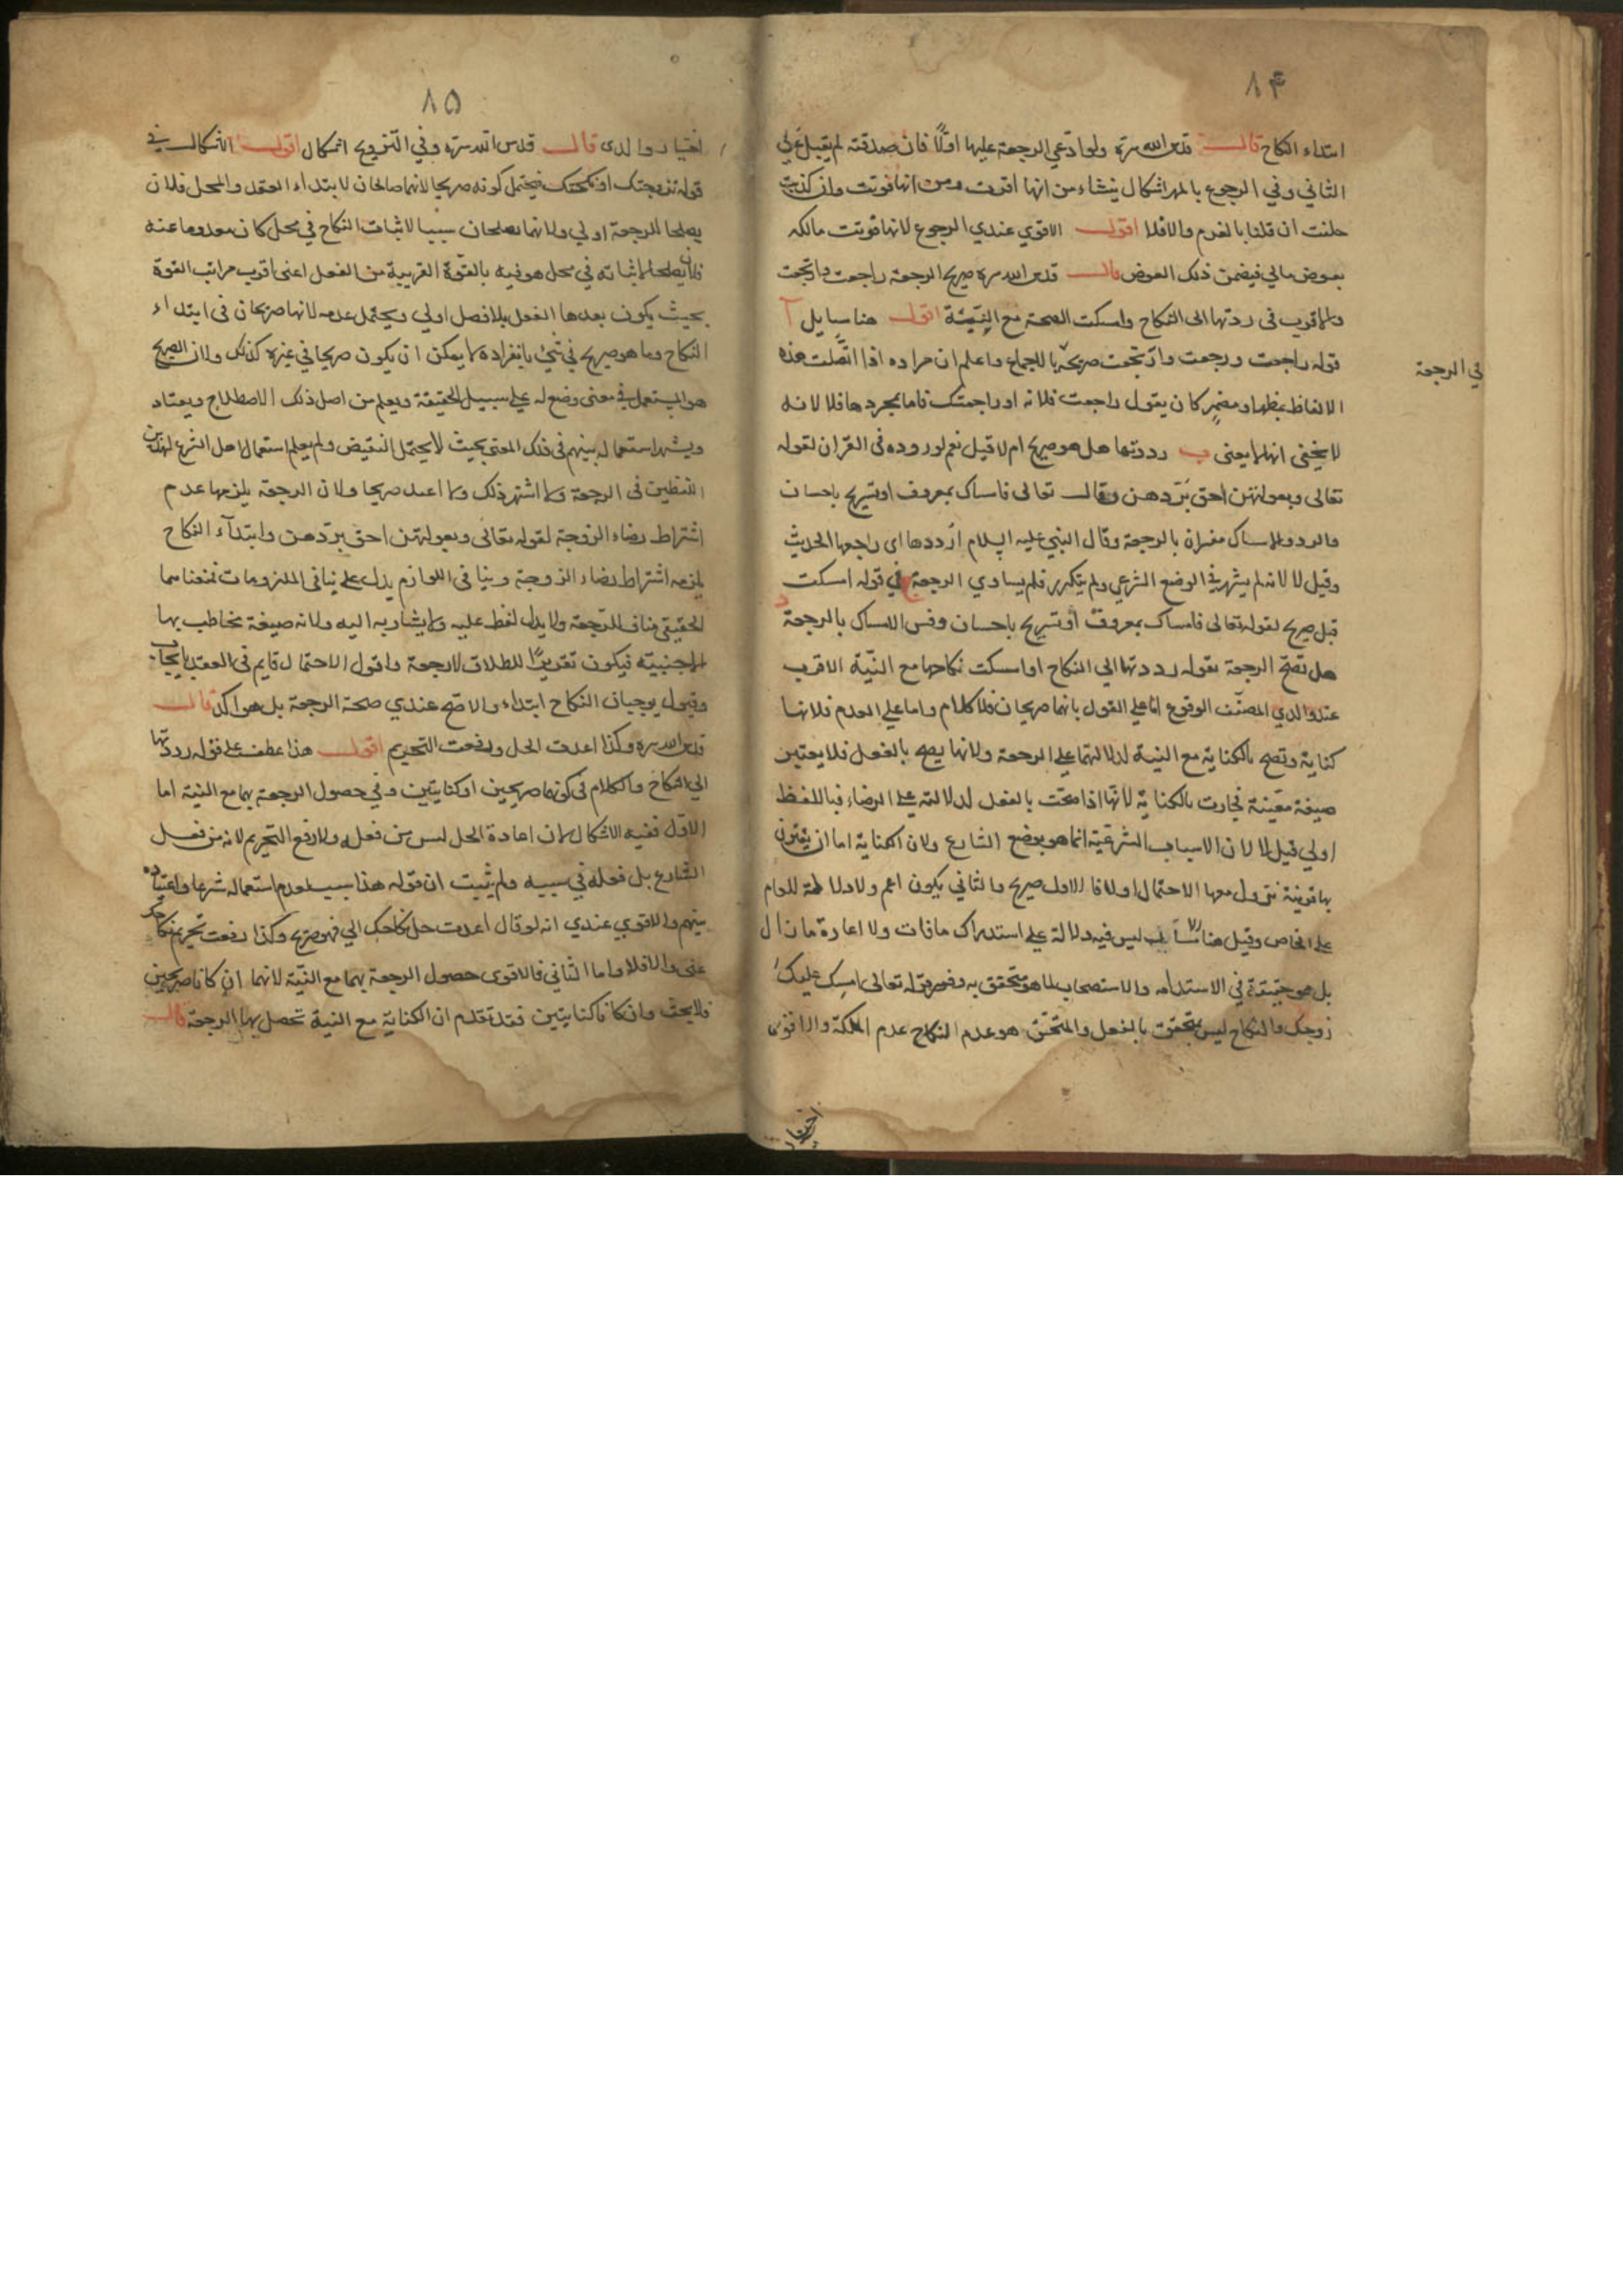 ٨۴
ابتداء النكاح قال قدس الله سره ولو ادعي الرجعة عليها اولا فان صدقته لم يقبل علي
الثاني وفي الرجوع بالمهر اشكال ينشاء من انها اقرت ومن انها فوتت وان كذبت
حلفت ان قلنا بالغرم والا فلا اقول الاقوي عندي الرجوع لانها فوتت مالكه
بعوض مالي فيضمن ذلك العوض قال قدس الله سره صريح الرجعة راجعت وارتجعت
والاقرب في رددتها الى النكاح وامسكت الصحة مع النيّة اقول هنا مسايل آ
قوله راجعت ورجعت وارتجعت صريحة بالاجماع واعلم ان مراده اذا اتصلت هذه
في الرجعة
الالفاظ بمظهر او مضمر كان يقول راجعت فلانة او راجعتك فاما بمجردها فلا لانه
لا يخفى انها لا يعنى ب رددتها هل هو صريح ام لا قيل نعم لوروده في القران لقوله
تعالى وبعولتهن احق بردهن وقال تعالى فامساك بمعروف او تسريح باحسان
والرد والامساك مفسران بالرجعة وقال النبي عليه السلام ارددها اى راجعها الحديث
وقيل لا لانه لم يشهر في الوضع الشرعي ولم يتكرر فلم يساوي الرجعة ج في قوله امسكت
قيل صريح لقوله تعالى فامساك بمعروف او تسريح باحسان وفسر الامساك بالرجعة د
هل تصح الرجعة بقوله رددتها الي النكاح او امسكت نكاحها مع النيّة الاقرب
عند والدي المصنف الوقوع اما على القول بانهما صريحان فلا كلام واما على العدم فلانها
كناية وتصح بالكناية مع النية لدلالتهما على الرجعة ولانها يصح بالفعل فلا يعتبر
صيغة معينة فجازت بالكناية لانها اذا صحت بالفعل لدلالته على الرضاء فباللفظ
اولي قيل لا لان الاسباب الشرعية انما هو بوضع الشارع ولان الكناية اما ان يقترن
بها قرينة تزول معها الاحتمال اولا فالاول صريح والثاني يكون اعم ولا دلالة للعام
على الخاص وقيل هنا لا ليس فيه دلالة على استدراك ما فات ولا اعادة ما زال
بل هو حقيقة في الاستدامه والاستصحاب لما هو متحقق به وهو قوله تعالى امسك عليك
زوجك والنكاح ليس بمتحقق بالفعل والمتحقق هو عدم النكاح عدم الملكة والاقوى
اختيار
٨۵
اختيار والدى قال قدس الله سره وفي التزويج اشكال اقول الاشكال في
قوله تزوجتك او نكحتك فيحتمل كونه صريحا لانهما صالحان لابتداء العقد والحل فلان
يصلحا للرجعة اولي ولانهما يصلحان سببا لاثبات النكاح في محل كان معدوما عنه
فلان يصلحا لاثباته في محل هو فيه بالقوة القريبة من الفعل اعني اقرب مراتب القوة
بحيث يكون بعدها الفعل بلا فصل اولي ويحتمل عدمه لانها صريحان في ابتداء
النكاح وما هو صريح في شئ بانفراده لا يمكن ان يكون صريحا في غيره كذلك ولان الصريح
هو المستعمل في معنى وضع له على سبيل الحقيقة ويعلم من اصل ذلك الاصطلاح ويعتاد
ويشهر استعماله بينهم في ذلك المعنى بحيث لا يحتمل النقيض ولم يعلم استعمال اهل الشرع لهذين
اللفظين في الرجعة ولا اشتهر ذلك ولا اعيد صريحا ولان الرجعة يلزمها عدم
اشتراط رضاء الزوجة لقوله تعالى وبعولتهن احق بردهن وابتداء النكاح
يلزمه اشتراط رضاء الزوجة وتنافى اللوازم يدل على تنافى الملزومات فمعناهما
الحقيقي مناف للرجعة ولا يدل لفظ عليه ولا يشار به اليه ولانه صيغة يخاطب بها
الاجنبية فيكون تقريرًا للطلاق لا رجعة واقول الاحتمال قايم في العقد بايجاب
وقبول يوجبان النكاح ابتداء والاصح عندي صحة الرجعة بل هو اكد قال
قدس الله سره وكذا اعدت الحل ورفعت التحريم اقول هذا عطف على قوله رددتها
الي النكاح والكلام في كونهما صريحين او كنايتين وفي حصول الرجعة بهما مع النية اما
الاول ففيه الاشكال لان اعادة الحل ليس من فعله ولا رفع التحريم لانه من فعل
الشارع بل فعله في سببه ولم يثبت ان قوله هذا سبب لعدم استعماله شرعا واعتياده
بينهم والاقوي عندي انه لو قال اعدت حل نكاحك الي فهو صريح وكذا رفعت تحريم نكاحك
عنى والا فلا واما الثاني فالاقوى حصول الرجعة بهما مع النيّة لانهما ان كانا صريحين
فلا بحث وان كانا كنايتين فقد تقدم ان الكناية مع النية تحصل بها الرجعة قال